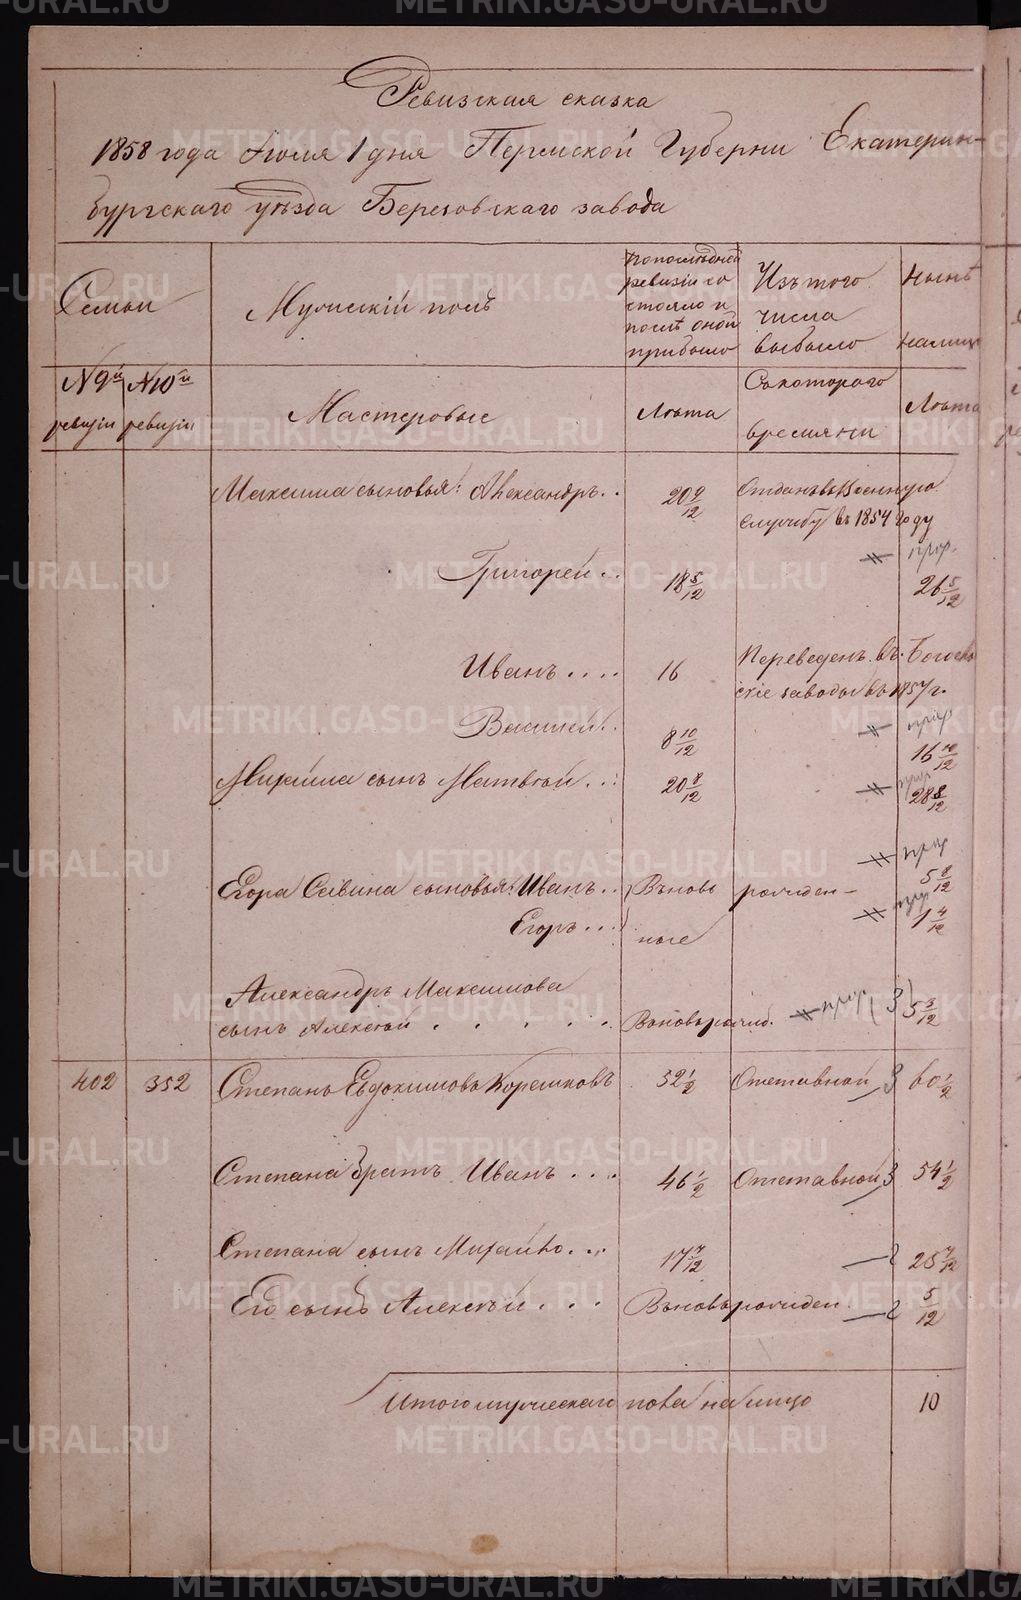 Ревизская сказка
1858 года Июля 1 дня Пермской Губернии Екатерин-
бургскаго уѣзда Березовскаго завода
Семьи
Мужескій полъ
По последней ревизіи со стояло и послѣ оной прибыло
Изъ того числа выбыло
Нынѣ налицо
N 9й ревизіи
N 10й ревизіи
Мастеровые
Лѣта
Съ котораго времяни
Лѣта
Максима сыновья: Александръ.. 20 9/12 Отданъ въ Военную
службу въ 1854 году
Григорей.. 18 5/12 26 5/12
Иванъ.... 16 Переведенъ въ Богослов
скіе заводы въ 1857 г.
Василей.. 8 10/12 16 10/12
Михаила сынъ Матвѣй... 20 8/12 28 8/12
Егора Савина сыновья: Иванъ.. Вновь рожден- 5 8/12
Егоръ... ные 1 4/12
Александръ Максимова
сынъ Алексѣй . . . . . Вновь рожд. 3 5 3/12
402 352 Степанъ Евдокимовъ Корешковъ 52 1/2 Отставной 3 60 1/2
Степана братъ Иванъ ... 46 1/2 Отставной 3 54 1/2
Степана сынъ Михайло... 17 7/12 25 7/12
Его сынъ Алексѣй.... Вновь рожден. 5/12
Итого мужескаго пола на лицо 10
METRIKI.GASO-URAL.RU